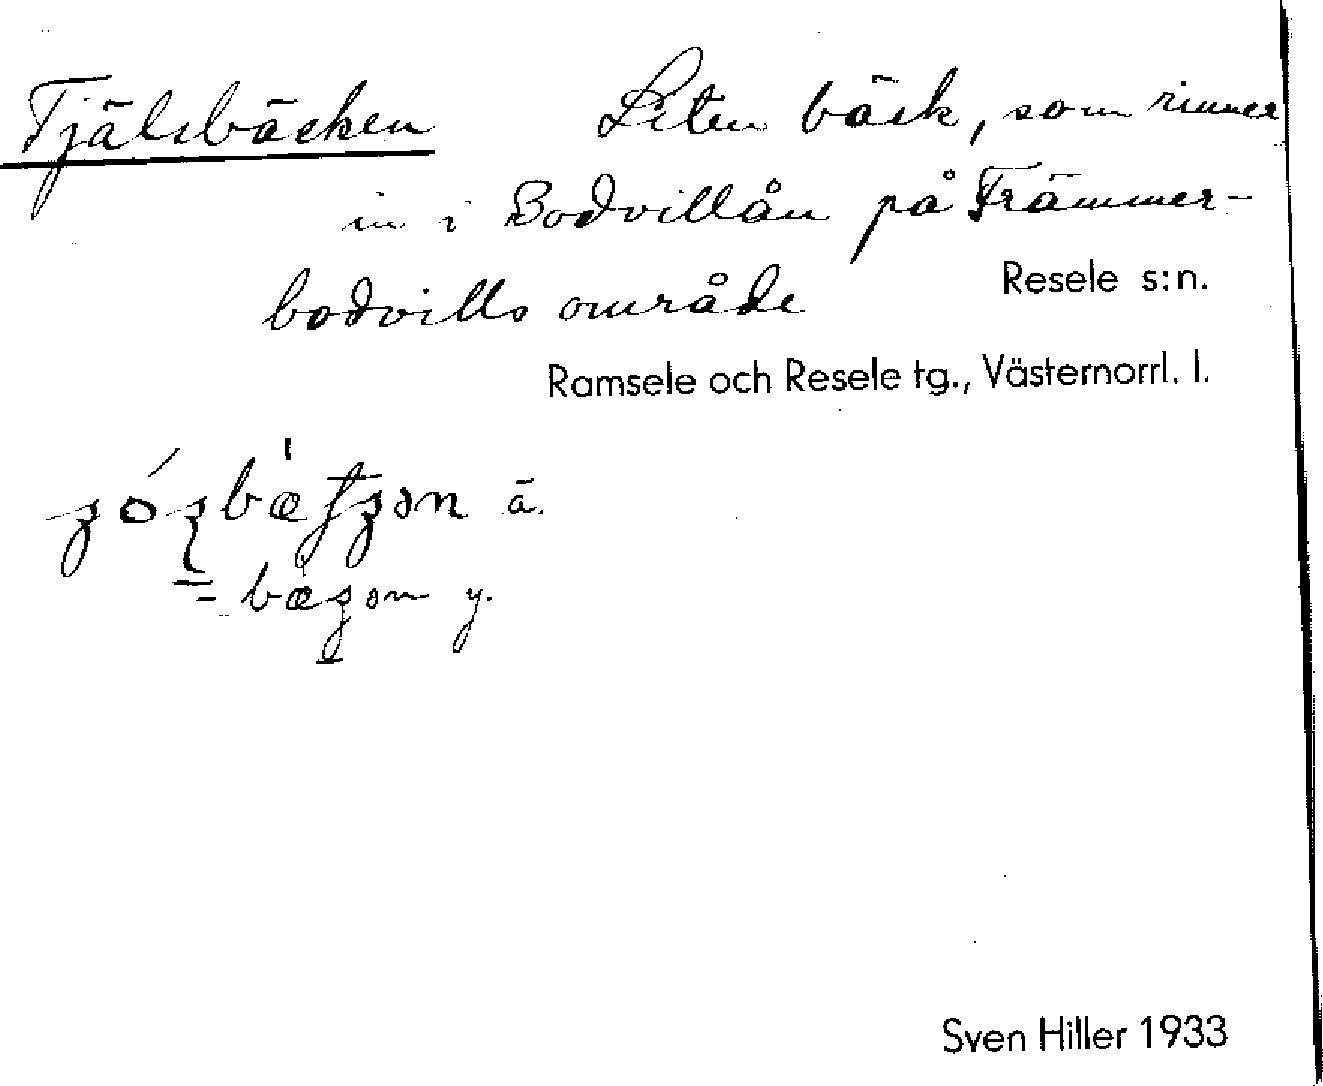 Tjälsbäcken Liten bäck, som rinner
in i Bodvillån på Främmer-
bodvills område
Resele s:n.
Ramsele och Resele tg., Västernorrl. l.
ä.
y.
Sven Hiller 1933